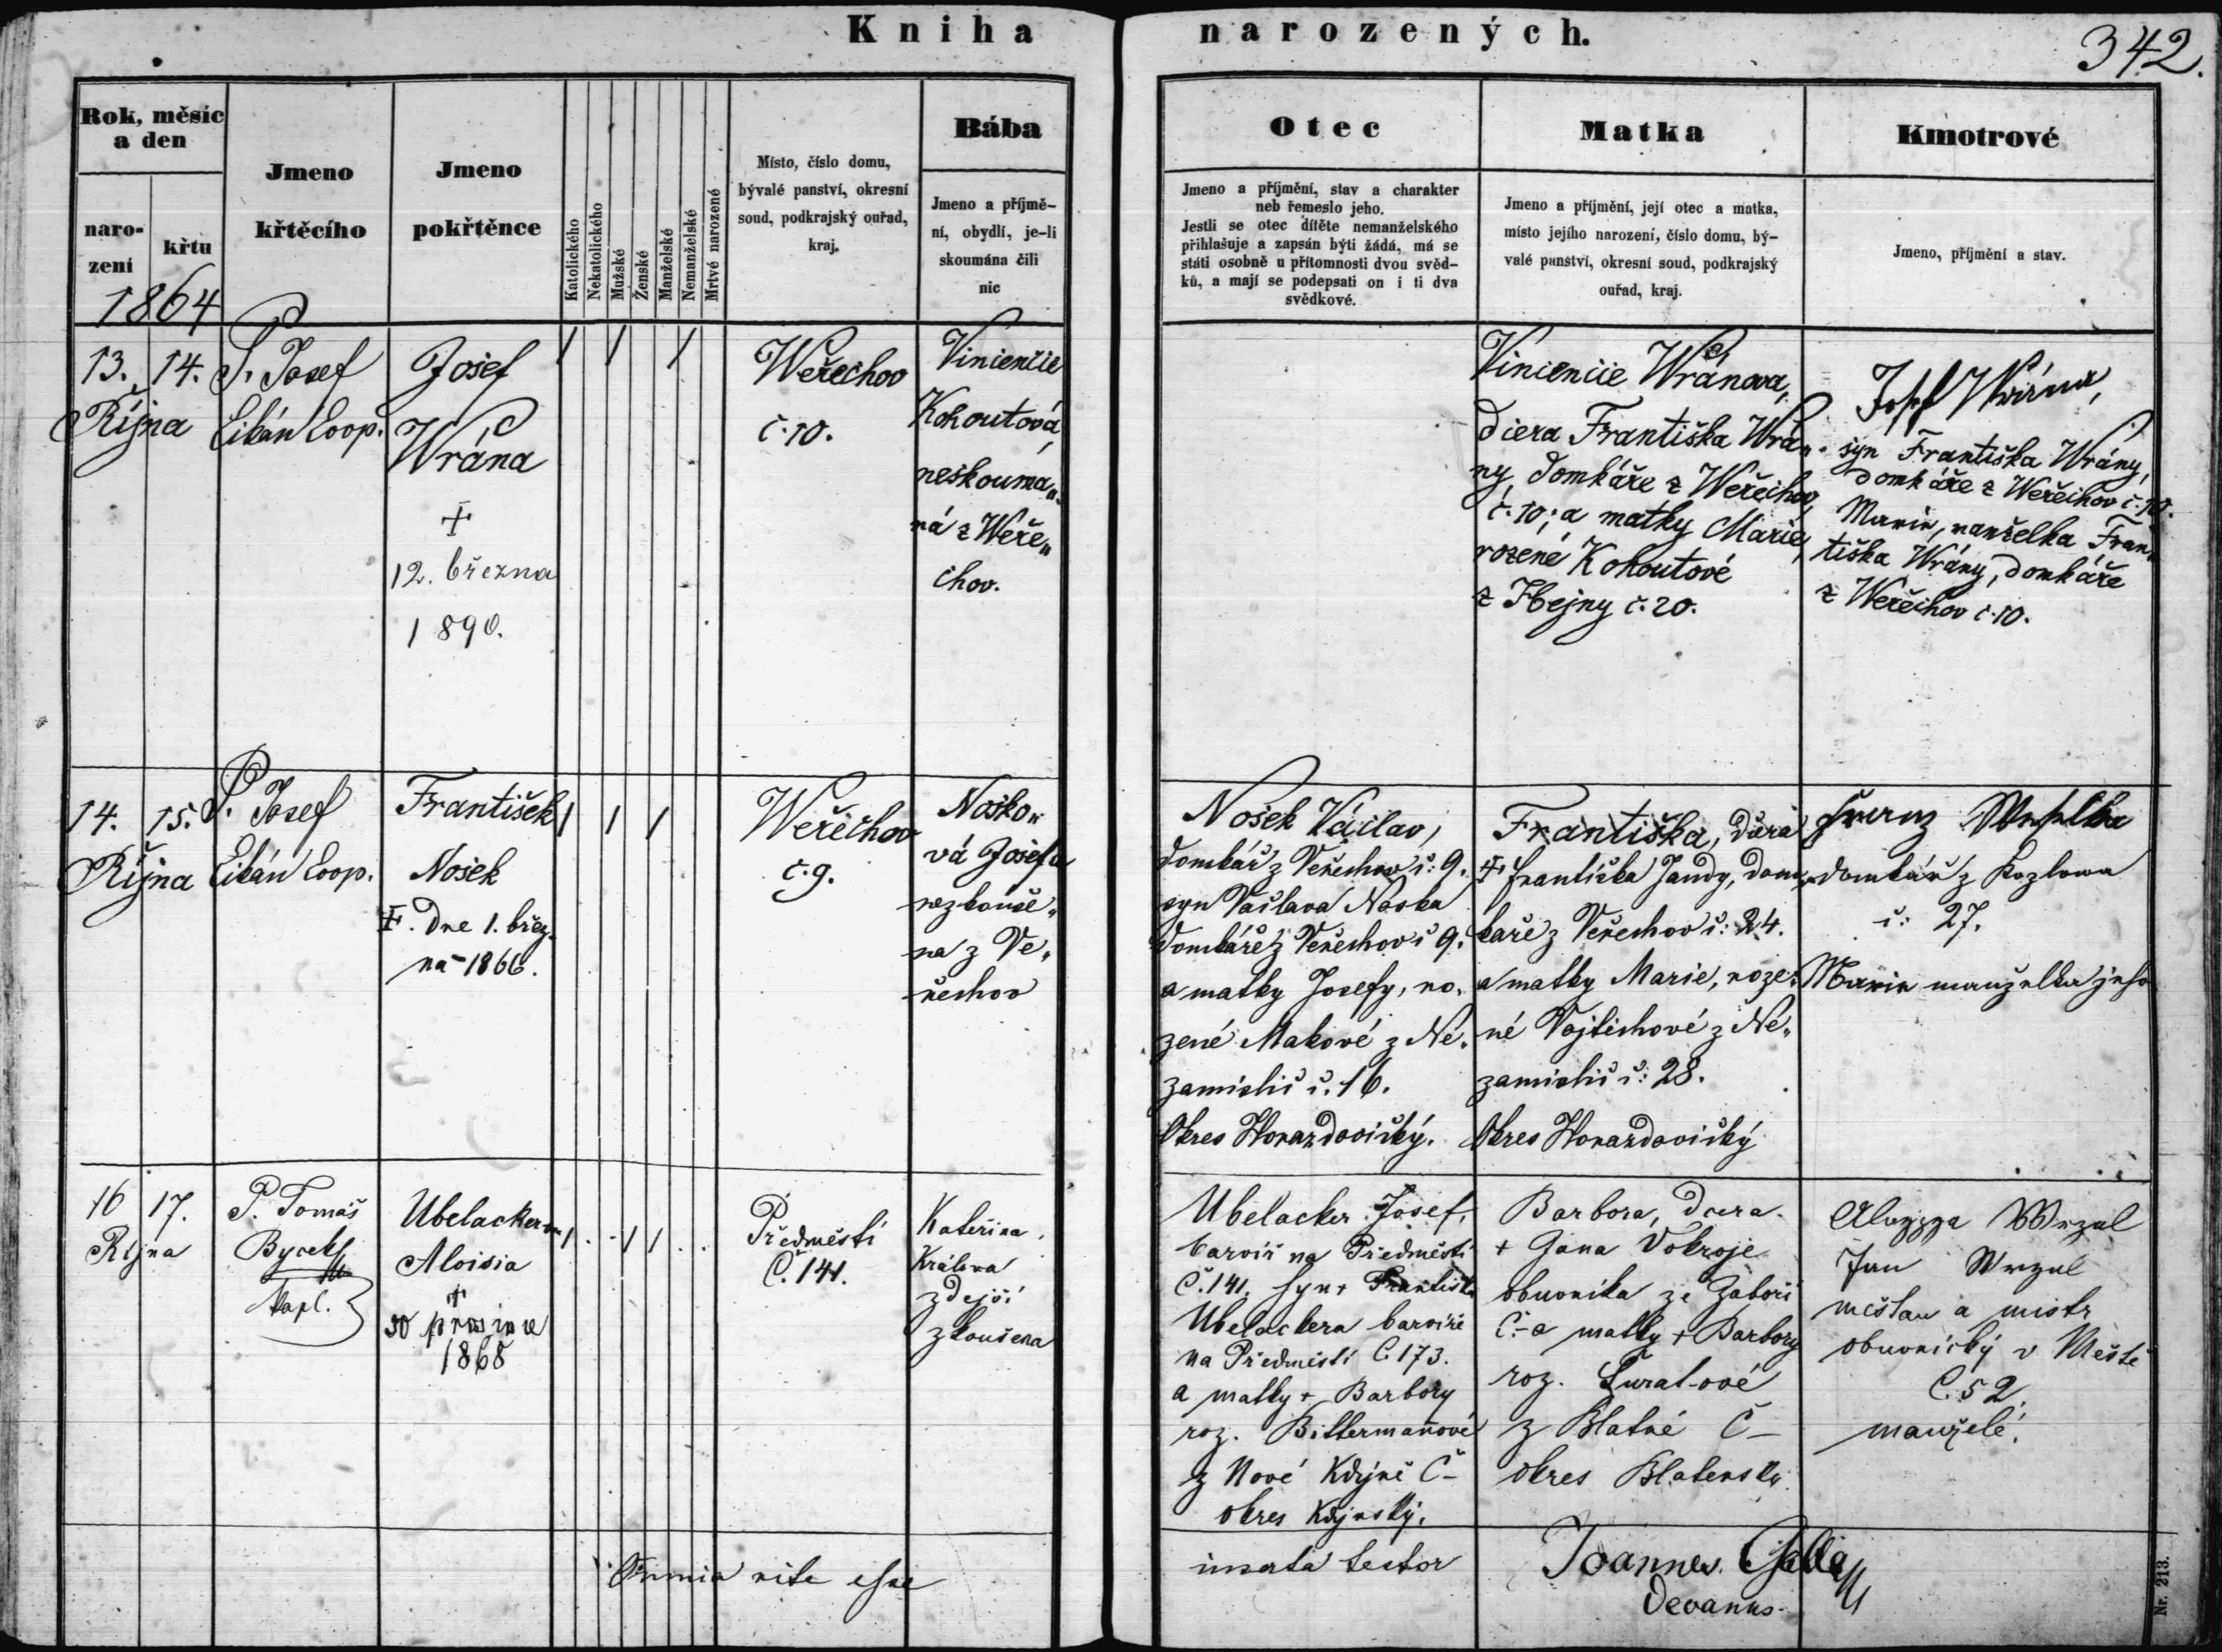 Kniha narozených.
342.
Rok, měsíc
a den
naro-
zení
křtu
1864
Jmeno
křtěcího
Jmeno
pokřtěnce
Katolického
Nekatolického
Mužské
Ženské
Manželské
Nemanželské
Mrtvé narozené
Místo, číslo domu,
bývalé panství, okresní
soud, podkrajský ouřad,
kraj.
Bába
Jmeno a příjmě-
ní, obydlí, je-li
skoumána čili
nic
Otec
Jmeno a příjmění, stav a charakter
neb řemeslo jeho.
Jestli se otec dítěte nemanželského
přihlašuje a zapsán býti žádá, má se
státi osobně u přítomnosti dvou svěd-
ků, a mají se podepsati on i ti dva
svědkové.
Matka
Jmeno a příjmění, její otec a matka,
místo jejího narození, číslo domu, bý-
valé panství, okresní soud, podkrajský
ouřad, kraj.
Kmotrové
Jmeno, příjmění a stav.
13. 14.
Října
P. Josef
Cikán Coop.
Josef
Wrána
+
12. března
1890.
/ / /
Weřechov
č. 10.
Vincencie
Kohoutová,
neskouma„
ná z Weře„
chov.
Vincencie Wránova,
dcera Františka Wrá„
ny, domkáře z Weřechov,
č. 10; a matky Marie,
rozené Kohoutové
z Hejny č. 20.
Josef Wrána,
syn Františka Wrány,
domkáře z Weřechov č. 10.
Marie, manželka Fran„
tiška Wrány, domkáře
z Weřechov č. 10.
14. 15.
Října
P. Josef
Cikán Coop.
František
Nosek
+. Dne 1. břez-
na 1866.
/ / /
Weřechov
č. 9.
Nosko„
vá Josefa
nezkouše„
na z Ve„
řechov
Nosek Václav,
domkář z Veřechov č: 9.
syn Václava Noska
domkáře z Veřechov č 9.
a matky Josefy, ro„
zené Makové z Ne„
zamislic č. 16.
Okres Horazdovický.
Františka, dcera
+ Františka Jandy, dom„
kaře z Veřechov č: 24.
a matky Marie, roze„
né Vojtěchové z Ne„
zamislic č: 28.
Okres Horazdovický
Franz Weselka
domkář z Kozlowa
č: 27.
Marie manželka jeho
16 17.
Října
P. Tomáš
Bycek
kapl.
Ubelackerov
Aloisia
+
30 prosince
1868
/ / /
Předměstí
Č. 141.
Kateřina
Králova
zdejší
zkoušena
Ubelacker Josef,
barvíř na Předměstí
Č. 141. syn + Františka
Ubelackera barvíře
na Předměstí Č. 173.
a matky + Barbory
roz. Bittermannové
z Nové Kdyně Č –
okres Kdynský.
Barbora, dcera
+ Jana Vokroje
obuvníka ze Zaboří
Č. – a matky + Barbory
roz.
z Blatné Č –
okres Blatensky.
Aloyzya Wrzal
Jan Wrzal
měšťan a mistr
obuvnický v Městě
Č. 52.
manželé.
Omnia rite esse
inserta testor
Joannes
Decanus.
Nr. 213.